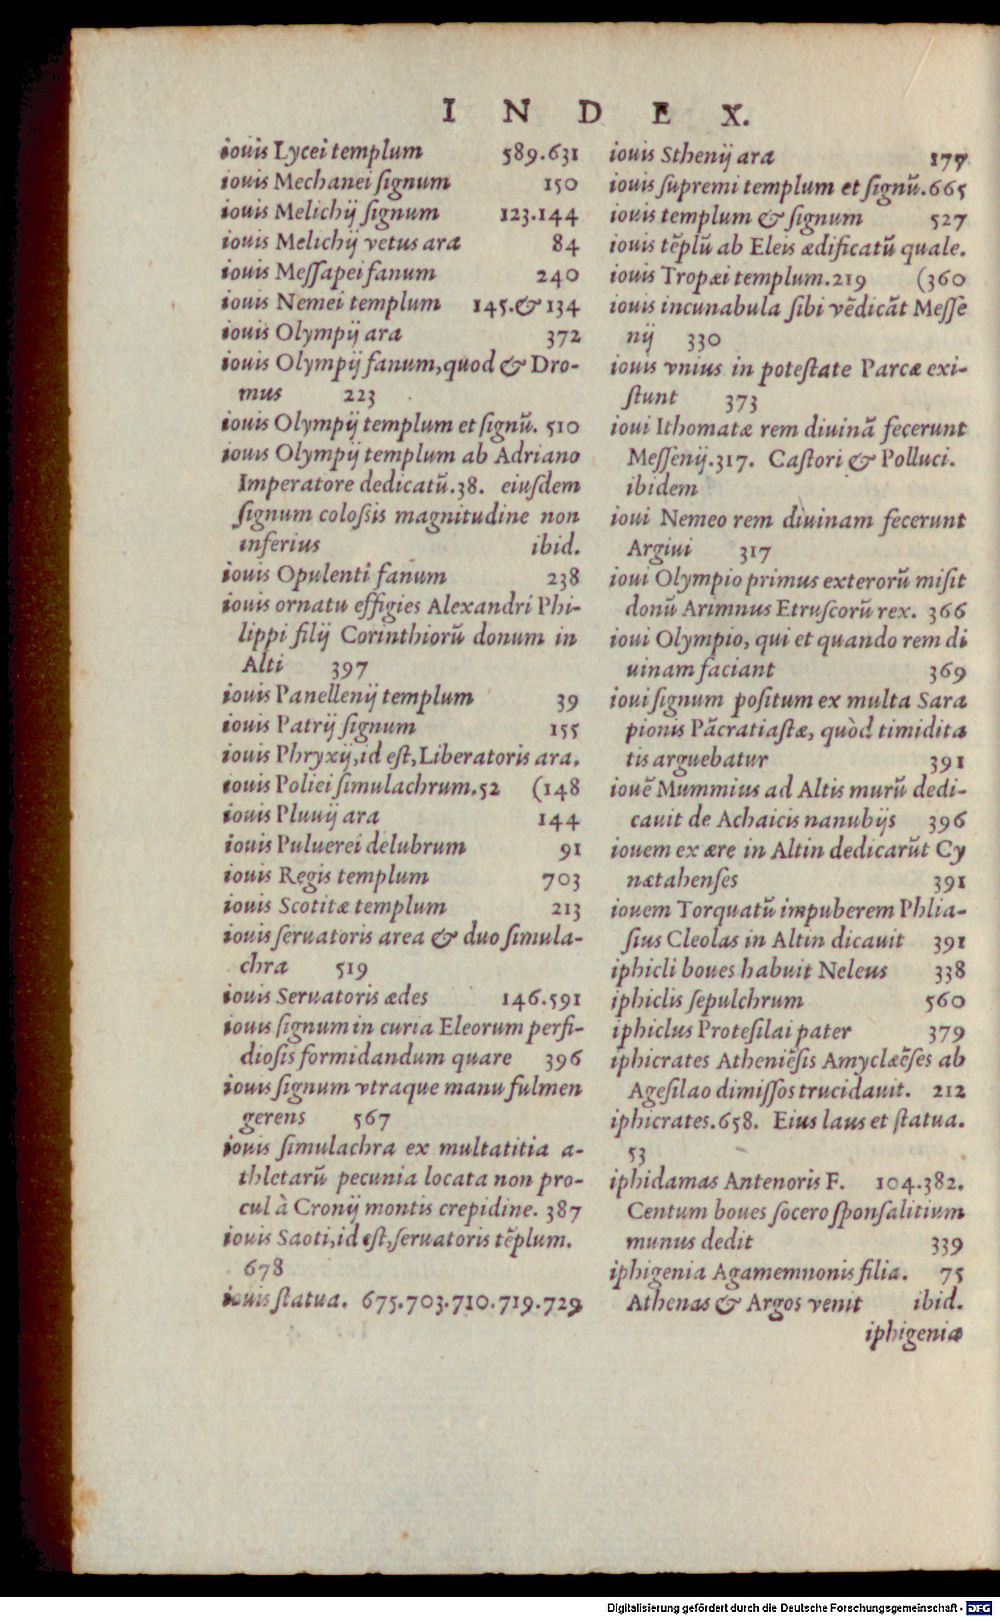 INDEX.
iouis Lycei templum 589.631
iouis Mechanei signum 150
iouis Melichij signum 123.144
iouis Melichij vetus ara 84
iouis Messapei fanum 240
iouis Nemei templum 145.& 134
iouis Olympij ara 372
iouis Olympij fanum, quod & Dro-
mus 223
iouis Olympij templum et signū. 510
iouis Olympij templum ab Adriano
Imperatore dedicatū.38. eiusdem
signum colossis magnitudine non
inferius ibid.
iouis Opulenti fanum 238
iouis ornatu effigies Alexandri Phi-
lippi filij Corinthiorū donum in
Alti 397
iouis Panellenij templum 39
iouis Patrij signum 155
iouis Phryxij, id est, Liberatoris ara.
iouis Poliei simulachrum.52 (148
iouis Pluuij ara 144
iouis Puluerei delubrum 91
iouis Regis templum 703
iouis Scotitæ templum 213
iouis seruatoris area & duo simula-
chra 519
iouis Seruatoris ædes 146.591
iouis signum in curia Eleorum perfi-
diosis formidandum quare 396
iouis signum vtraque manu fulmen
gerens 567
iouis simulachra ex multatitia a-
thletarū pecunia locata non pro-
cul à Cronij montis crepidine. 387
iouis Saoti, id est, seruatoris tēplum.
678
iouis statua. 675.703.710.719.729
iouis Sthenij ara 177
iouis supremi templum et signū.665
iouis templum & signum 527
iouis tēplū ab Eleis ædificatū quale.
iouis Tropæi templum.219 (360
iouis incunabula sibi vēdicāt Messe
nij 330
iouis vnius in potestate Parcæ exi-
stunt 373
ioui Ithomatæ rem diuinā fecerunt
Messenij.317. Castori & Polluci.
ibidem
ioui Nemeo rem diuinam fecerunt
Argiui 317
ioui Olympio primus exterorū misit
donū Arimnus Etruscorū rex. 366
ioui Olympio, qui et quando rem di
uinam faciant 369
ioui signum positum ex multa Sara
pionis Pācratiastæ, quòd timidita
tis arguebatur 391
iouē Mummius ad Altis murū dedi-
cauit de Achaicis nanubijs 396
iouem ex ære in Altin dedicarūt Cy
nætahenses 391
iouem Torquatū impuberem Phlia-
sius Cleolas in Altin dicauit 391
iphicli boues habuit Neleus 338
iphiclis sepulchrum 560
iphiclus Protesilai pater 379
iphicrates Atheniēsis Amyclæēses ab
Agesilao dimissos trucidauit. 212
iphicrates.658. Eius laus et statua.
53
iphidamas Antenoris F. 104.382.
Centum boues socero sponsalitium
munus dedit 339
iphigenia Agamemnonis filia. 75
Athenas & Argos venit ibid.
iphigeniæ
Digitalisierung gefördert durch die Deutsche Forschungsgemeinschaft - DFG